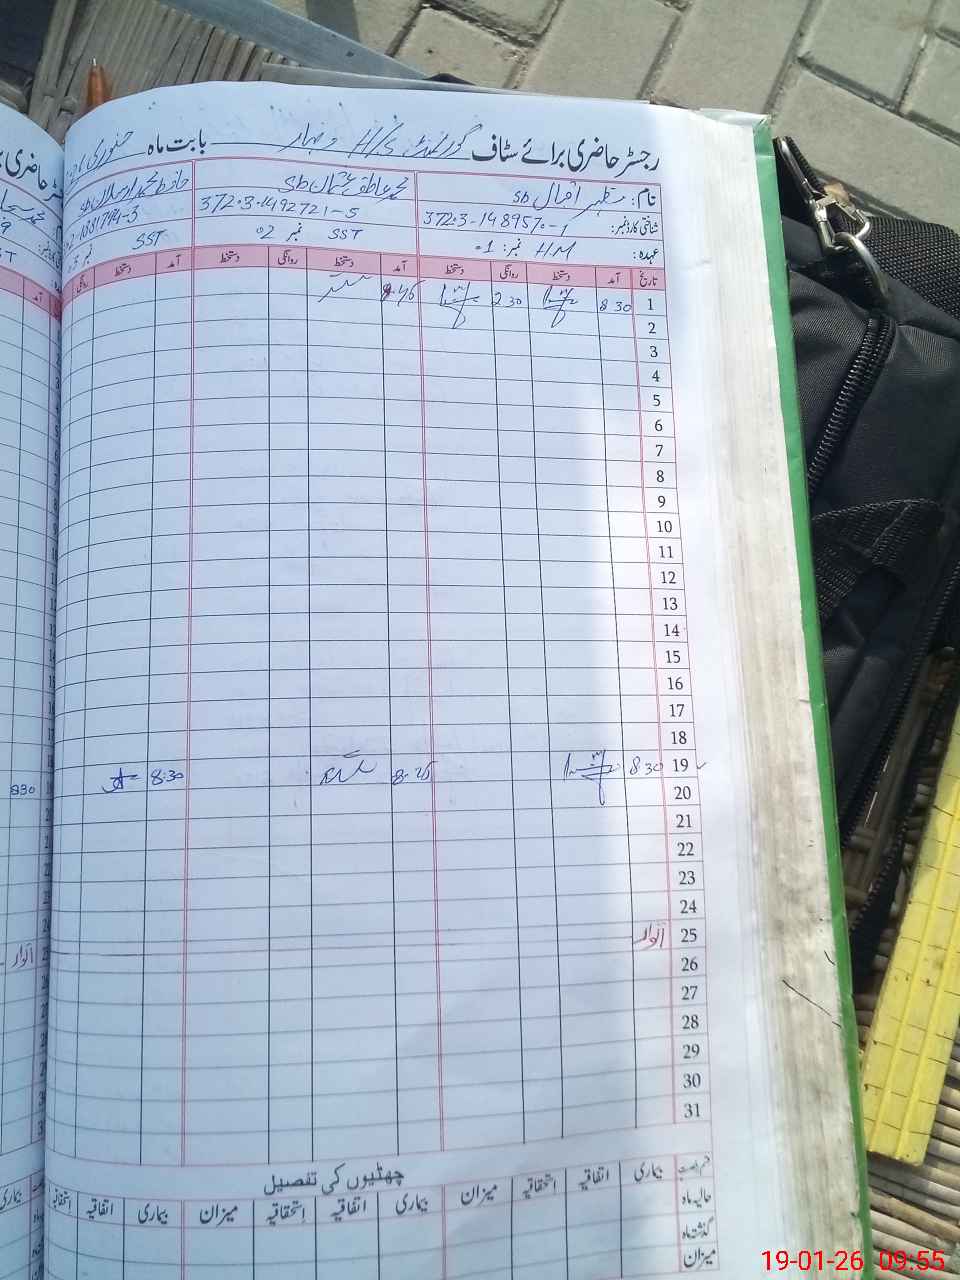 رجسٹر حاضری برائے سٹاف گورنمنٹ H/S بابت ماہ جنوری
نام: مظہر اقبال sb محمد عاطف عثمان sb حافظ محمد ارسلان sb
شناختی کارڈ نمبر: 37203-1489570-1 37203-1492721-5
عہدہ: H.M نمبر: 01 SST نمبر 02 SST
تاریخ آمد دستخط روانگی دستخط آمد دستخط روانگی دستخط آمد دستخط
1 8 30 2 30 8:45
2
3
4
5
6
7
8
9
10
11
12
13
14
15
16
17
18
19 8 30 8:25 8:30 830
20
21
22
23
24
25 اتوار اتوار
26
27
28
29
30
31
چھٹیوں کی تفصیل
بیماری اتفاقیہ استحقاقیہ میزان بیماری اتفاقیہ استحقاقیہ میزان بیماری اتفاقیہ استحقاقیہ
حالیہ ماہ
گذشتہ ماہ
میزان
19-01-26 09:55